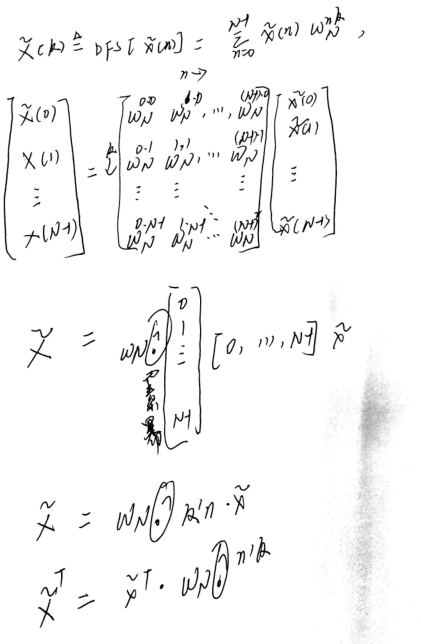 X̃(k) ≜ DFS[x̃(n)] = Σ_{n=0}^{N-1} x̃(n) W_N^{nk},
n→
[X̃(0) X(1) ⋮ X(N-1)] = k↓ [W_N^{0·0} W_N^{1·0}, ..., W_N^{(N-1)·0} W_N^{0·1} W_N^{1·1}, ... W_N^{(N-1)·1} ⋮ ⋮ ⋮ W_N^{0·N-1} W_N^{1·N-1} ... W_N^{(N-1)²}] [x̃(0) x̃(1) ⋮ x̃(N-1)]
X̃ = W_N .^ [0 1 ⋮ N-1] [0, ..., N-1] x̃
X̃ = W_N .^ k'n · x̃
X̃^T = x̃^T · W_N .^ n'k